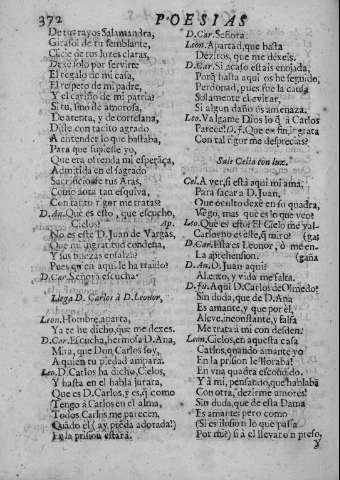 372 POESIAS
De tus rayos Salamandra,
Girasol de tu semblante,
Clicie de tus luzes claras,
Dexè solo por servirte
El regalo de mi casa,
El respeto de mi padre,
Y el cariño de mi patria?
Si tu, sino de amorosa,
De atenta, y de cortesana,
Diste con tacito agrado
A entender lo que bastaba,
Para que supiesse yo,
Que era ofrenda mi esperãça,
Admitida en el sagrado
Sacrificio de tus Aras,
Como aora tan esquiva,
Con tanto rigor me tratas?
D. An. Què es esto, que escucho,
Cielos! Ap.
No es este D. Juan de Vargas,
Que mi ingratitud condena,
Y sus finezas ensalza?
Pues quien aqui le ha traido?
D. Car. Señora escucha.
Llega D. Carlos à D. Leonor,
Leon. Hombre, aparta,
Ya te he dicho, que me dexes.
D. Car. Escucha, hermosa D. Ana,
Mira, que Don Carlos soy,
A quien tu piedad ampara.
Leo. D. Carlos ha dicho, Cielos,
Y hasta en el habla jurara,
Que es D. Carlos, y es, q̃ como
Tengo à Carlos en el alma,
Todos Carlos me parecen,
Quãdo èl (ay prenda adorada!)
En la prision estarà.
D. Car. Señora.
Leon. Apartad, que basta
Deziros, que me dexeis.
D. Car. Si acaso estais enojada,
Porq̃ hasta aqui os he seguido,
Perdonad, pues fue la causa
Solamente el evitar,
Si algun daño os amenaza.
Leo. Valgame Dios lo q̃ à Carlos
Parece! D. J. Que en fin, ingrata
Con tal rigor me desprecias?
Sale Celia con luz.
Cel. A ver, si està aqui mi ama,
Para sacar à D. Juan,
Que oculto dexè en su quadra,
Vẽgo, mas què es lo que veo!
Leo. Què es esto? El Cielo me val-
Carlos no es este, q̃ miro? (gas
D. Car. Esta es Leonor, ò me en.
La aprehension. (gaña
D. An. D. Juan aqui?
Aliento, y vida me falta.
D. Ju. Aqui D. Carlos de Olmedo!
Sin duda, que de D. Ana
Es amante, y que por èl,
Aleve, inconstante, y falsa
Me trata à mi con desdèn.
Leon. Cielos, en aquesta casa
Carlos, quando amante yo
En la prision le lloraba!
En vna quadra escondido.
Y à mi, pensando, que hablaba
Con otra, dezirme amores!
Sin duda, que de esta Dama
Es amante; pero como
(Si es ilusion lo que passa
Por mi?) si à èl llevaron preso,
Y